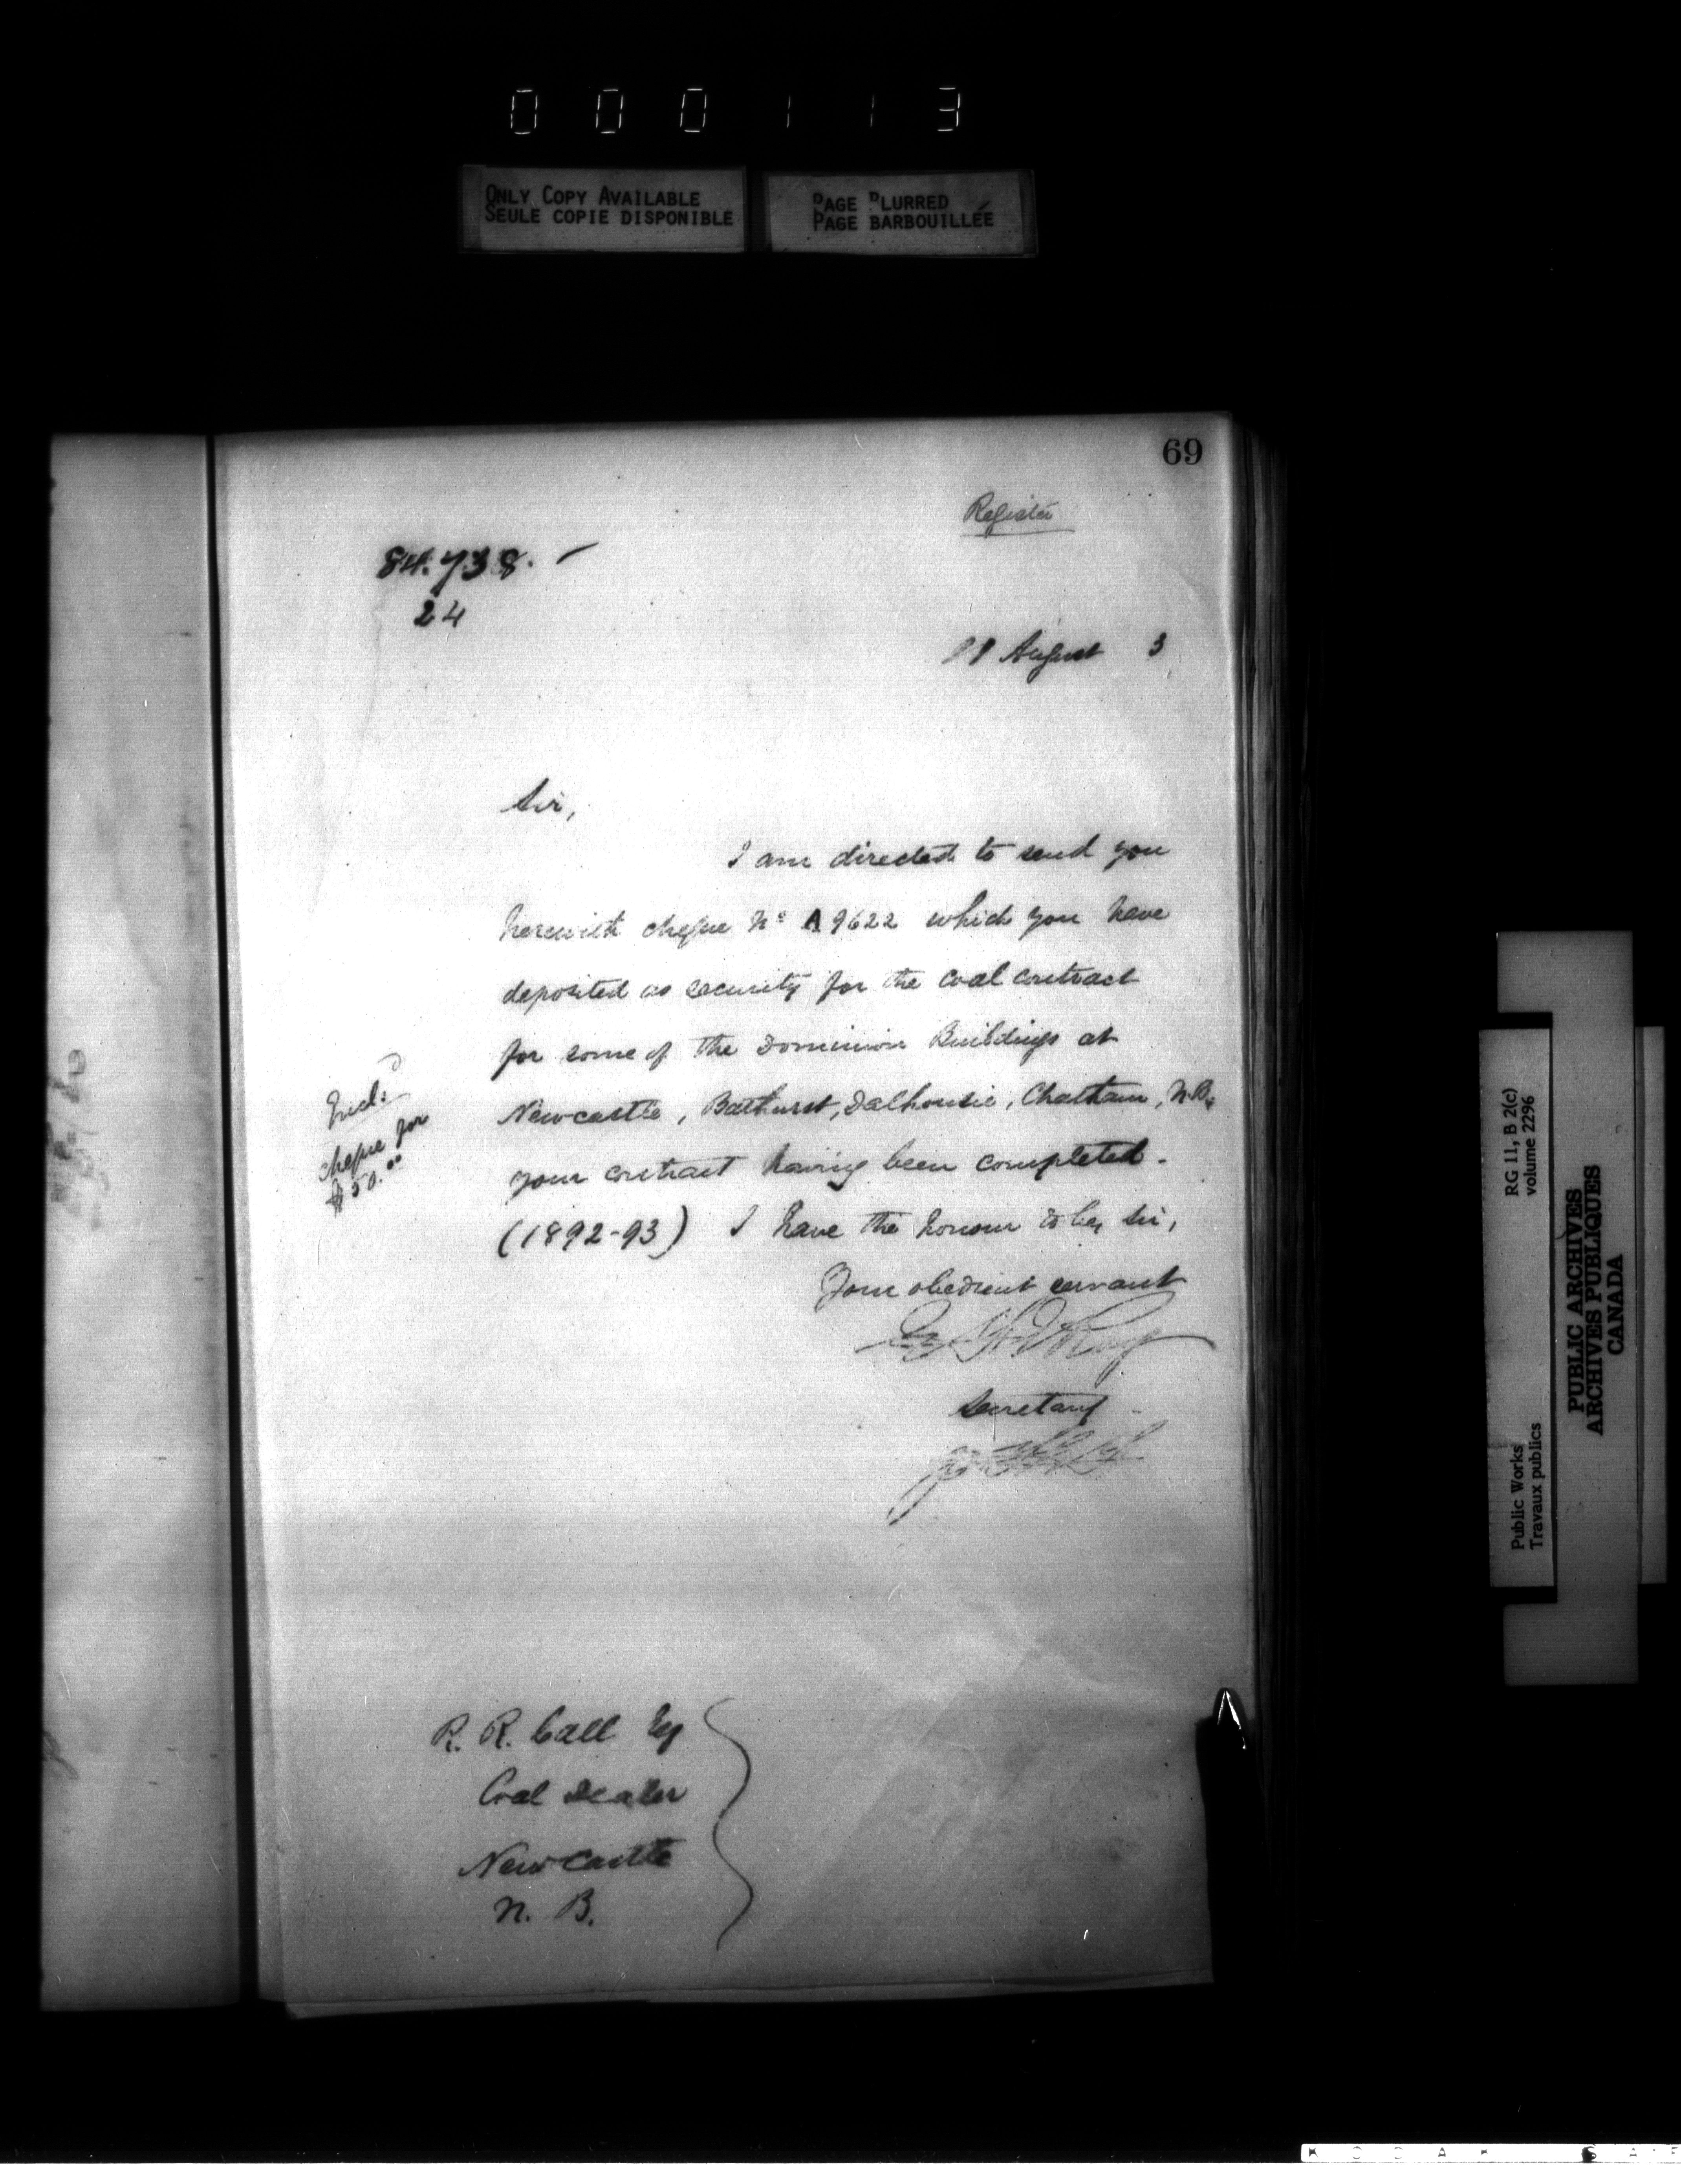 000113
ONLY COPY AVAILABLE
SEULE COPIE DISPONIBLE
PAGE BLURRED
PAGE BARBOUILLÉE
69
Register
84.738. –
24
11 August 3
Sir,
I am directed to send you
herewith cheque No A 9622 which you have
deposited as security for the coal contract
for some of the Dominion Buildings at
Newcastle, Bathurst, Dalhousie, Chatham, N.B.
your contract having been completed.
(1892-93) I have the honour to be, Sir,
Your obedient servant
Secretary
Incl:
cheque for
$50.00
R. R. Call Esq
Coal Dealer
Newcastle
N. B.
RG 11, B 2(c)
volume 2296
Public Works
Travaux publics
PUBLIC ARCHIVES
ARCHIVES PUBLIQUES
CANADA
KODAK SAFE